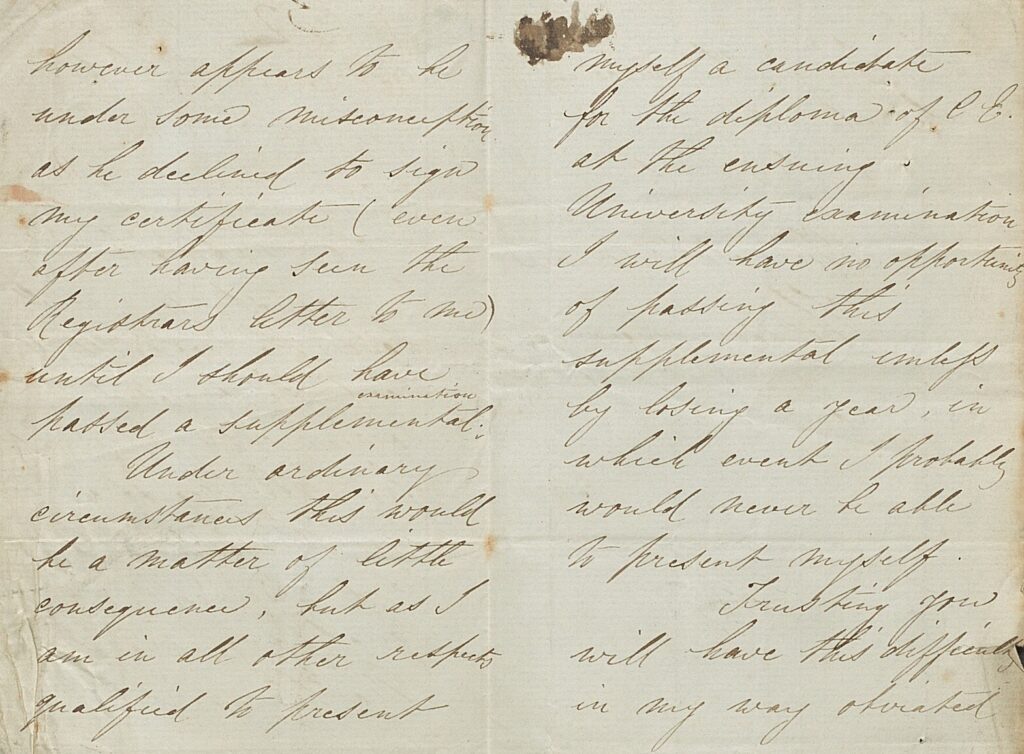 however appears to be
under some misconception
as he declined to sign
my certificate (even
after having seen the
Registrars letter to me)
until I should have
examination
passed a supplemental.
Under ordinary
circumstances this would
be a matter of little
consequence, but as I
am in all other respects
qualified to present
myself a candidate
for the diploma of C E.
at the ensuing
University examination
I will have no opportunity
of passing this
supplemental unless
by losing a year, in
which event I probably
would never be able
to present myself.
Trusting you
will have this difficulty
in my way obviated